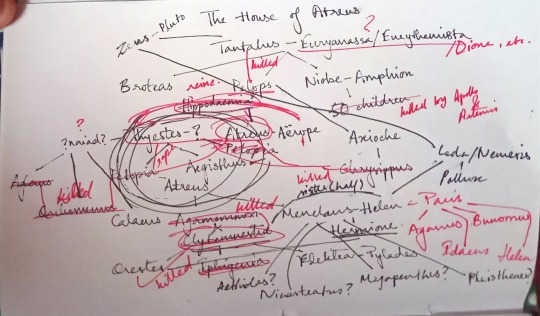 The House of Atreus
Zeus - Pluto
?
Tantalus - Euryanassa/Eurythemista
/Dione, etc.
killed
Broteas
Pelops
Niobe - Amphion
Hippodaemia
50 children
killed by Apollo
&
Artemis
?
? naiad?
Thyestes - ?
Atreus - Aërope
Axioche
Pelopia
rape
Leda/Nemesis
Pelopia
Aegisthus
killed
Chrysippus
killed
Atreus
sister (half)
Pollux
Orchomenus
killed
Calaeus
Agamemnon
Menelaus - Helen - Paris
Clytemnestra
Hermione
Aganus
Bunomus
Orestes
killed
Iphigenia
Elektra - Pylades
Idaeus
Helen
Aethiolas?
Nicostratus?
Megapenthes?
Pleisthenes?